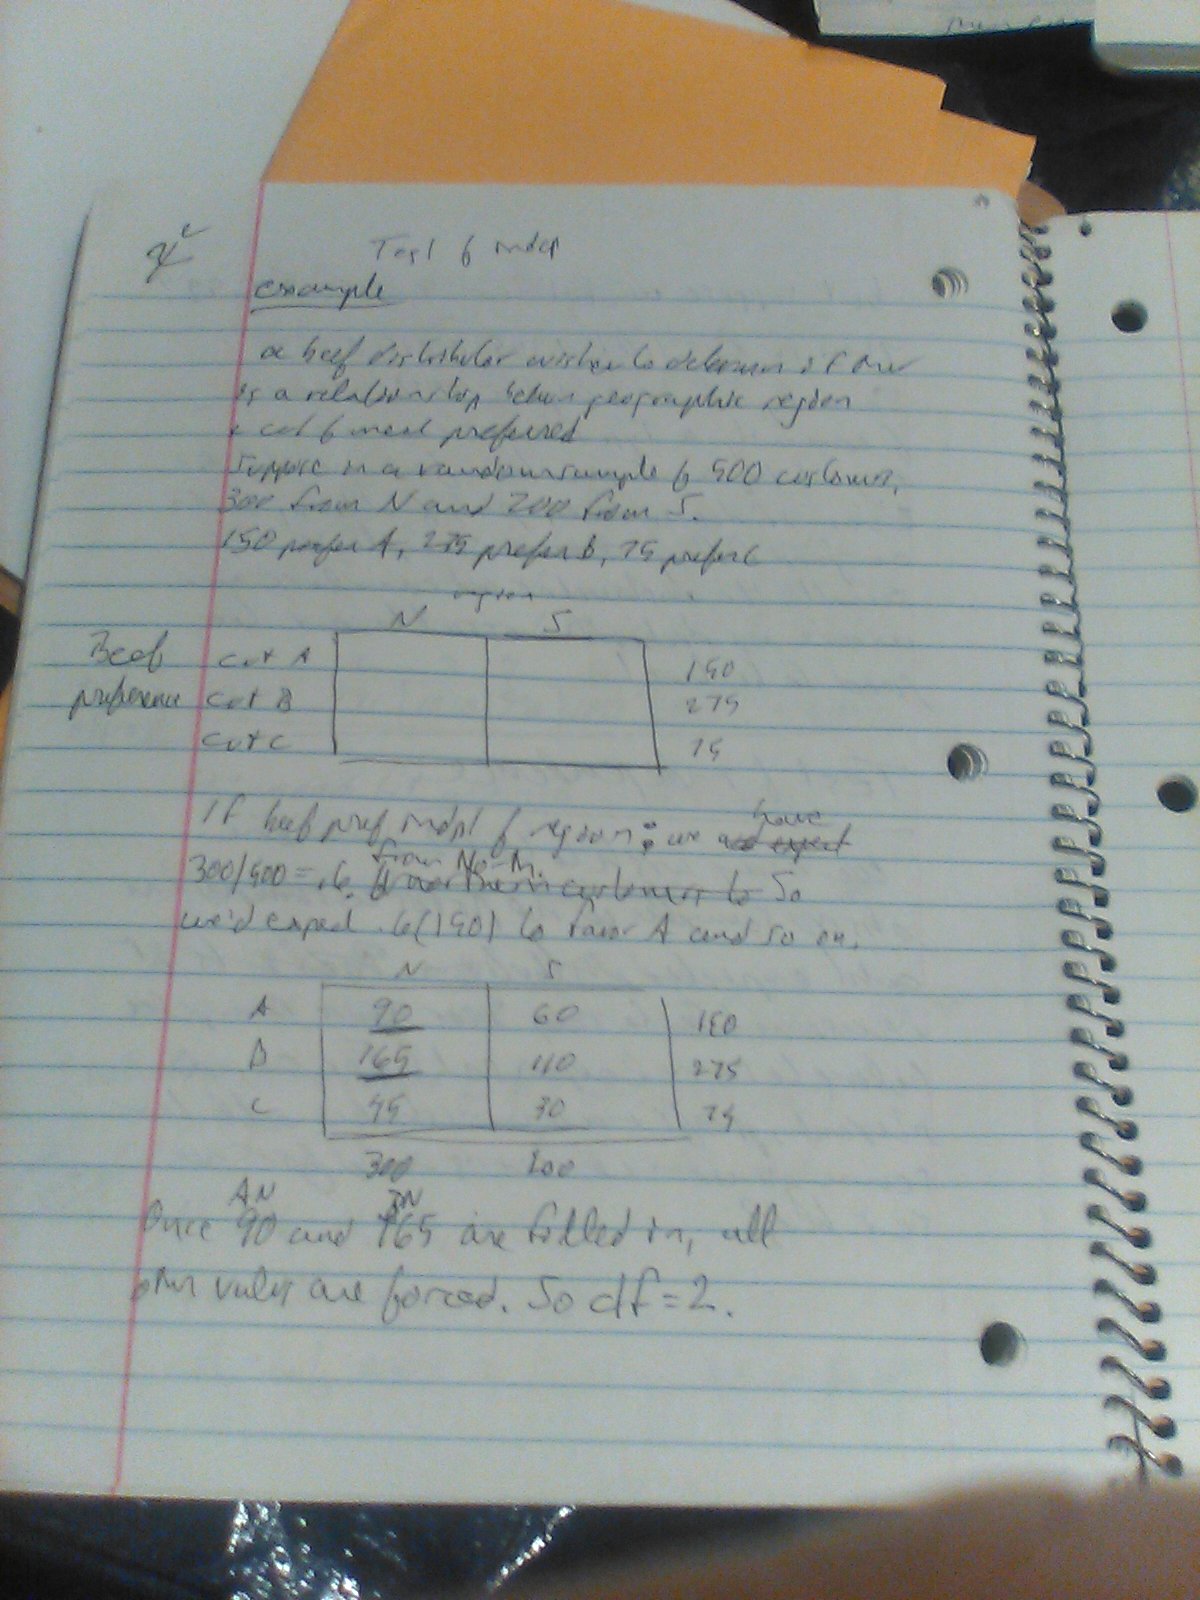 χ²
Test of indep
example
a beef distributor wishes to determin if there
is a relationship between geographic region
+ cut of meat preferred
Suppose in a random sample of 500 customers,
300 from N and 200 from S.
150 prefer A, 275 prefer B, 75 prefer C
region
N S
Beef cut A 150
preference cut B 275
cut C 75
If beef pref indpt of region: we have
300/500 = .6 from North. So
we'd expect .6(150) to favor A and so on.
N S
A 90 60 150
B 165 110 275
C 45 30 75
300 200
AN BN
Once 90 and 165 are filled in, all
other values are forced. So df = 2.